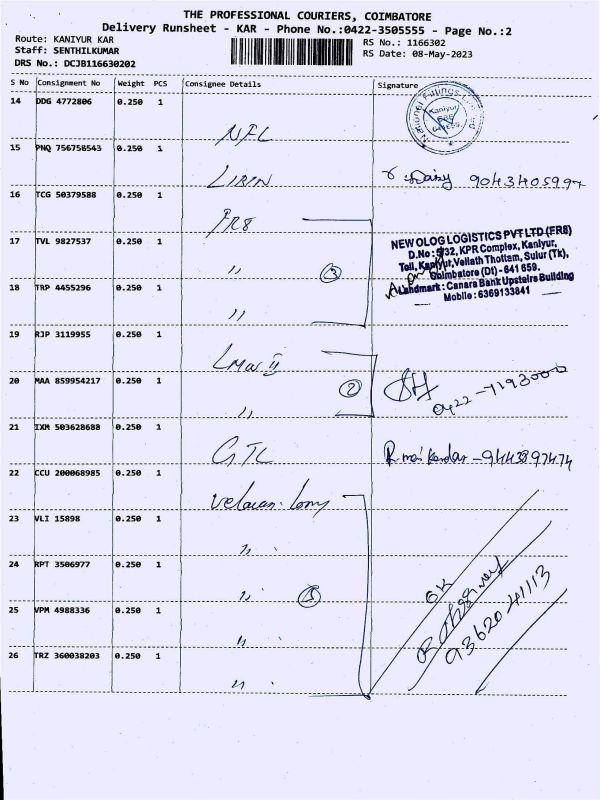 THE PROFESSIONAL COURIERS, COIMBATORE
Delivery Runsheet - KAR - Phone No.:0422-3505555 - Page No.:2
Route: KANIYUR KAR
Staff: SENTHILKUMAR
DRS No.: DCJB116630202
RS No.: 1166302
RS Date: 08-May-2023
S No Consignment No Weight PCS Consignee Details Signature
14 DDG 4772806 0.250 1
NFL
Kaniyur
15 PNQ 756758543 0.250 1
LIRIN 9043405997
16 TCG 50379588 0.250 1
FR8
17 TVL 9827537 0.250 1
" 3
NEW OLOG LOGISTICS PVT LTD (FR8)
D.No: 5/32, KPR Complex, Kaniyur,
Toll, Kaniyur, Vellath Thottam, Sulur (Tk),
Coimbatore (Dt) - 641 659.
Landmark : Canara Bank Upstairs Building
Mobile : 6369133841
18 TRP 4455296 0.250 1
"
19 RJP 3119955 0.250 1
LMW II
20 MAA 859954217 0.250 1
" 2
0422-7193000
21 IXM 503628688 0.250 1
GTC R. - 9443897474
22 CCU 200068985 0.250 1
Velavan.
23 VLI 15898 0.250 1
"
24 RPT 3506977 0.250 1
" 5
OK
25 VPM 4988336 0.250 1
"
9362041113
26 TRZ 360038203 0.250 1
"